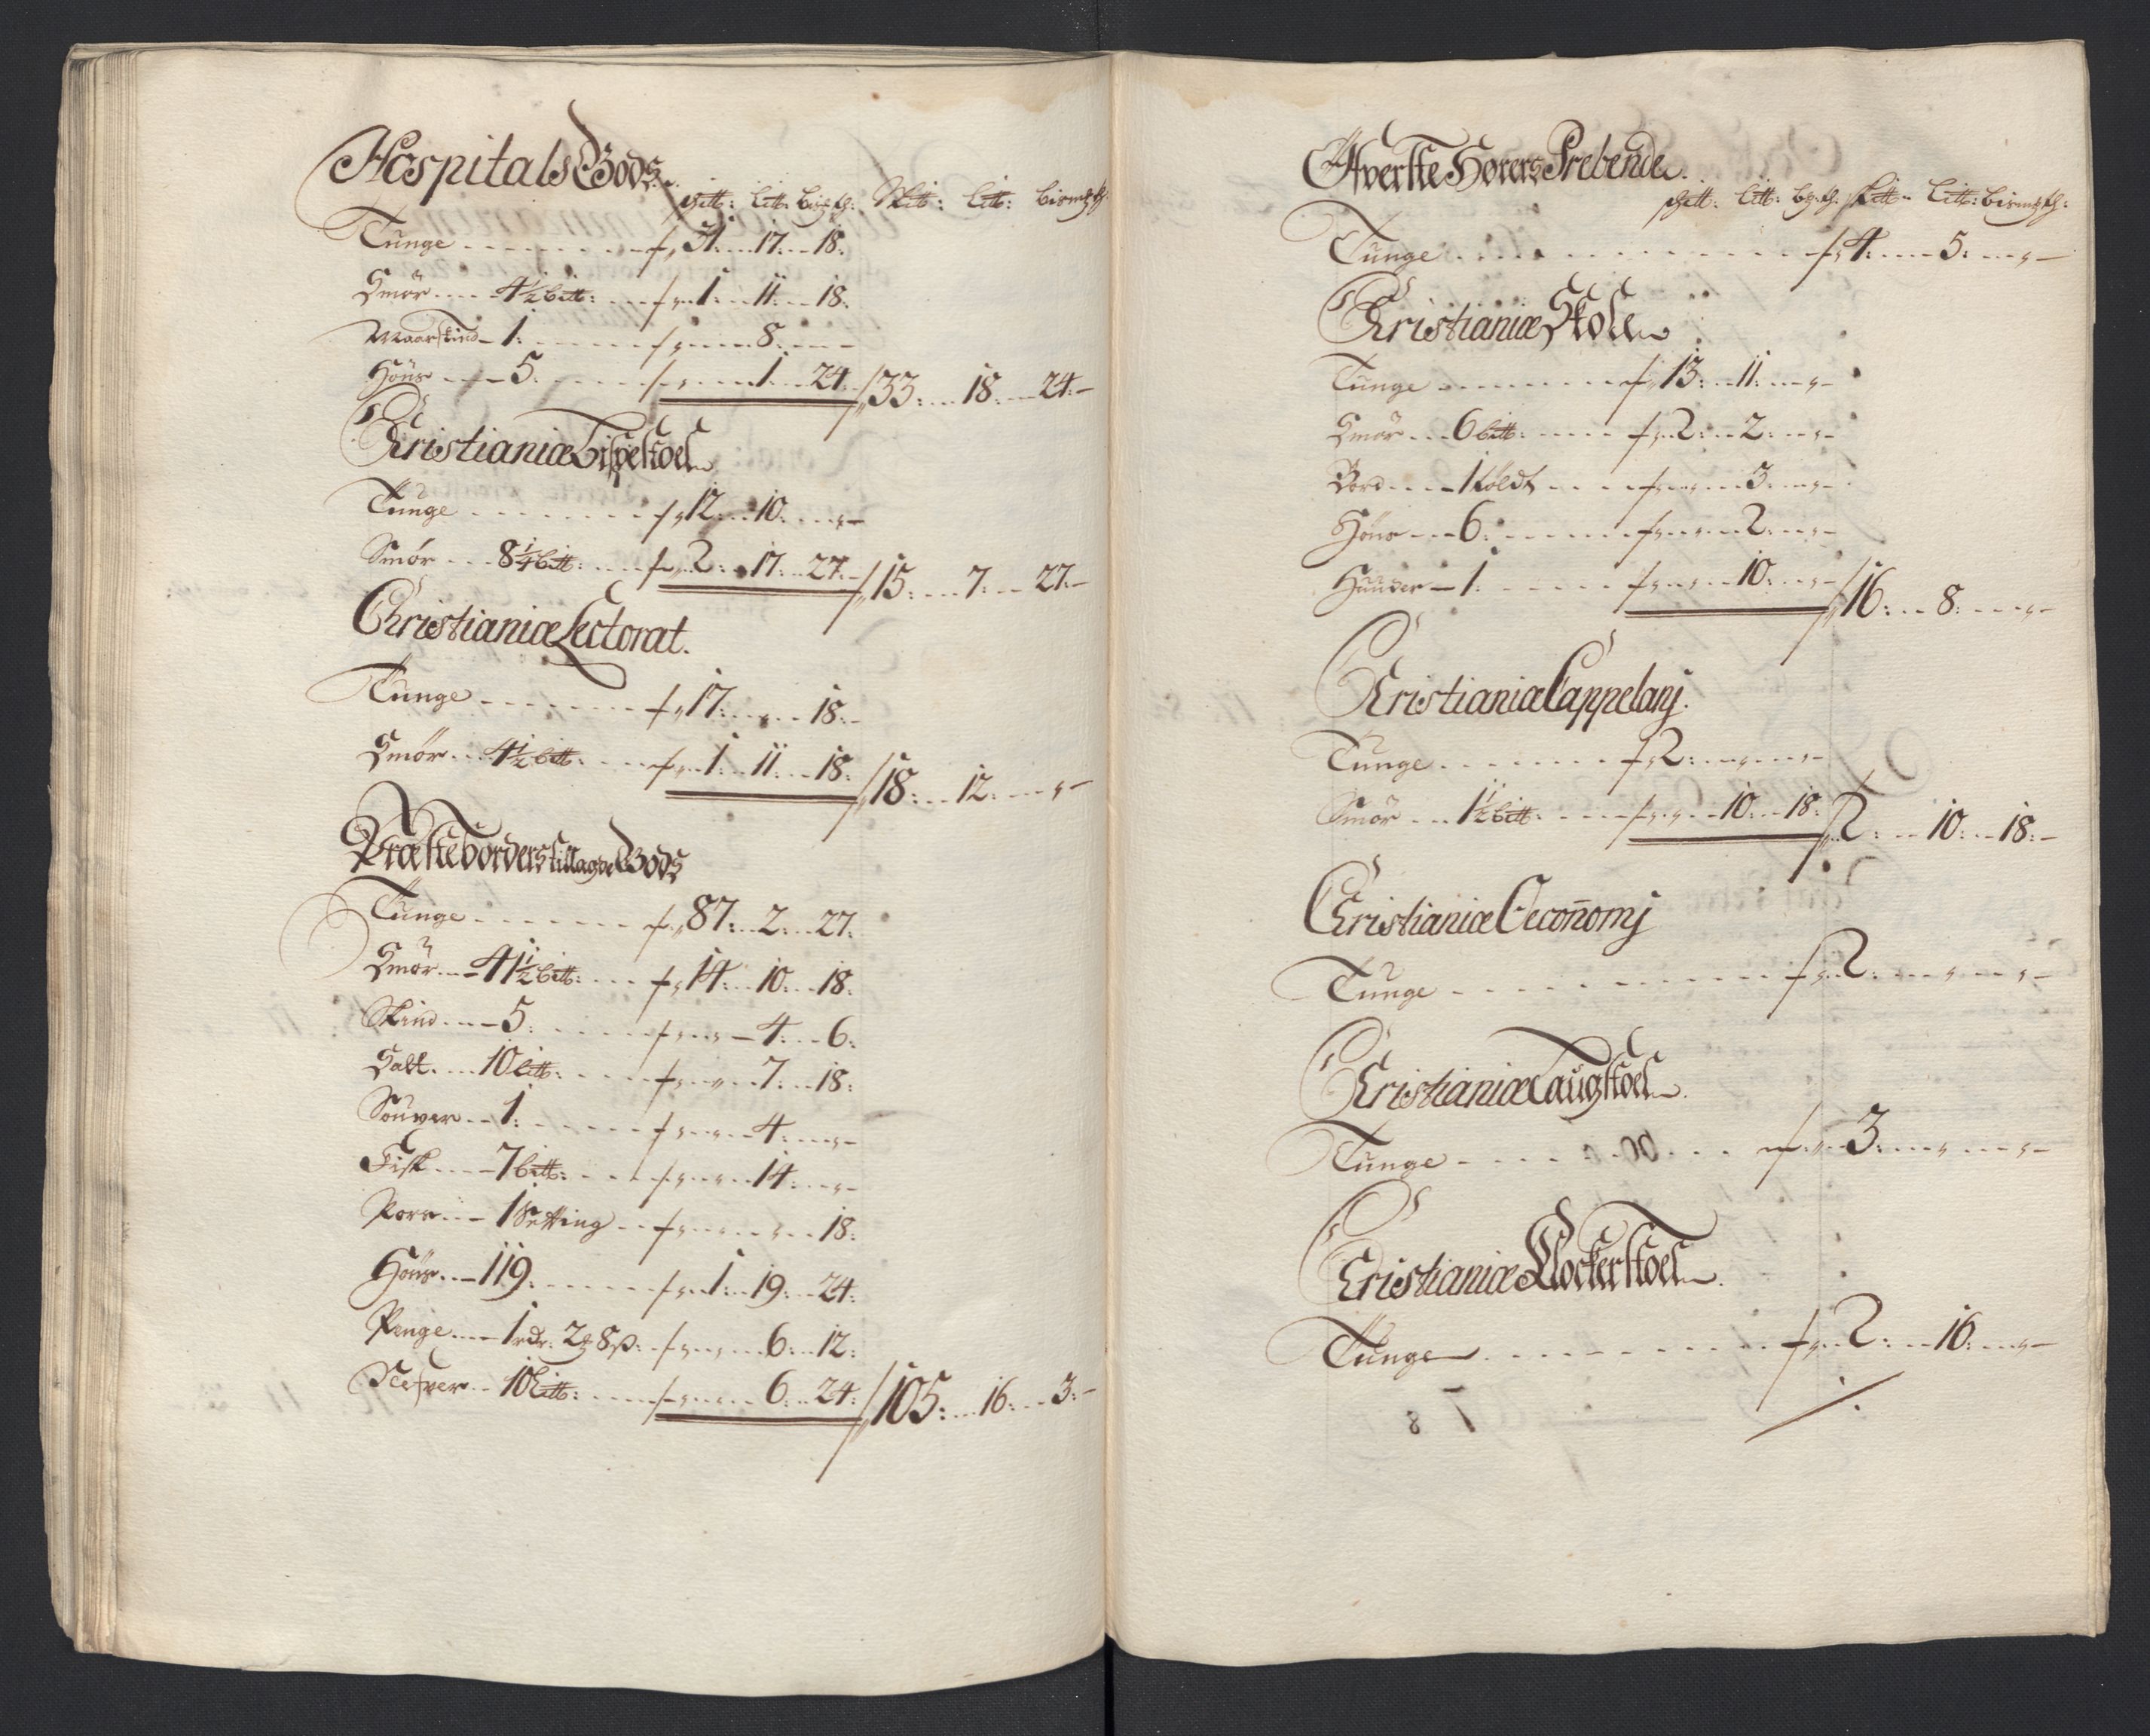 Hospitals Gods
sk℔: lit℔: bisz℔: Sk℔: lit℔: bismz℔:
Tunge - - - - - - 31: - 17: - 18:
Smør - - - 4½ bit℔: - - - 1: - 11: - 18:
Maarskind - 1: - - - - - - 8: - - -
Høns - - - 5: - - - - - 1 - 24: - 33: - 18: - 24: -
Christianiæ Bispestoel
Tunge - - - - - - 12: - 10: - - „ -
Smør - - - 8¼ bit℔: - - - 2: - 17: - 27: - 15: - 7: - 27: -
Christianiæ Lectorat.
Tunge - - - - - - 17: - „ - 18: -
Smør - - - 4½ bit℔: - - - 1: - 11: - 18: 18: - 12: - - „ -
Præsteborders tillagde Gods
Tunge - - - - - - 87: - 2: - 27:
Smør - - - 41½ bit℔: - - - 14: - 10: - 18:
Skind - - - 5: - - - - „ - 4: - 6:
Salt. - - - 10 lit℔: - - - „ - 7: - 18:
Souver - - 1: - - - - - „ - 4: - - „ -
Fisk - - - 7 bit℔: - - - „ - 14: - - „ -
Korn - - - 1 Setting - - „ - „ - 18:
Høns - - - 119: - - - - - 1: - 19: - 24:
Penge - - - 1 rdr: 2 ꝫ 8 ß: - „ - 6: - 12:
Næfver - - 10 lit℔: - - - „ - 6: - 24: 105: - 16: - 3: -
Øfverste Hørers Prebende.
sk℔: lit℔: bz℔: sk℔: lit℔: bismz℔:
Tunge - - - - - - - - - 4: - 5: - - „ -
Christianiæ Skole
Tunge - - - - - - 13: - 11: - - „ -
Smør - - - 6 bit℔: - - - - 2: - 2: - - „ -
Bord - - - 1 tøldt - - - „ - 3: - - „ -
Høns - - - 6: - - - - - „ - 2: - - „ -
Huuder - 1: - - - - - „ - 10: - - „ - 16: - 8: - - „ -
Christianiæ Cappelanj.
Tunge - - - - - - 2: - - „ - - „ -
Smør - - - 1½ bit℔: - - - „ - 10: - 18: 2: - 10: - 18: -
Christianiæ Oeconomj
Tunge - - - - - - - - - 2: - - „ - - „ -
Christianiæ Laugstoel
Tunge - - - - - - - - - 3: - - „ - - „ -
Christianiæ Klockerstoel
Tunge - - - - - - - - - 2: - 16: - - „ -